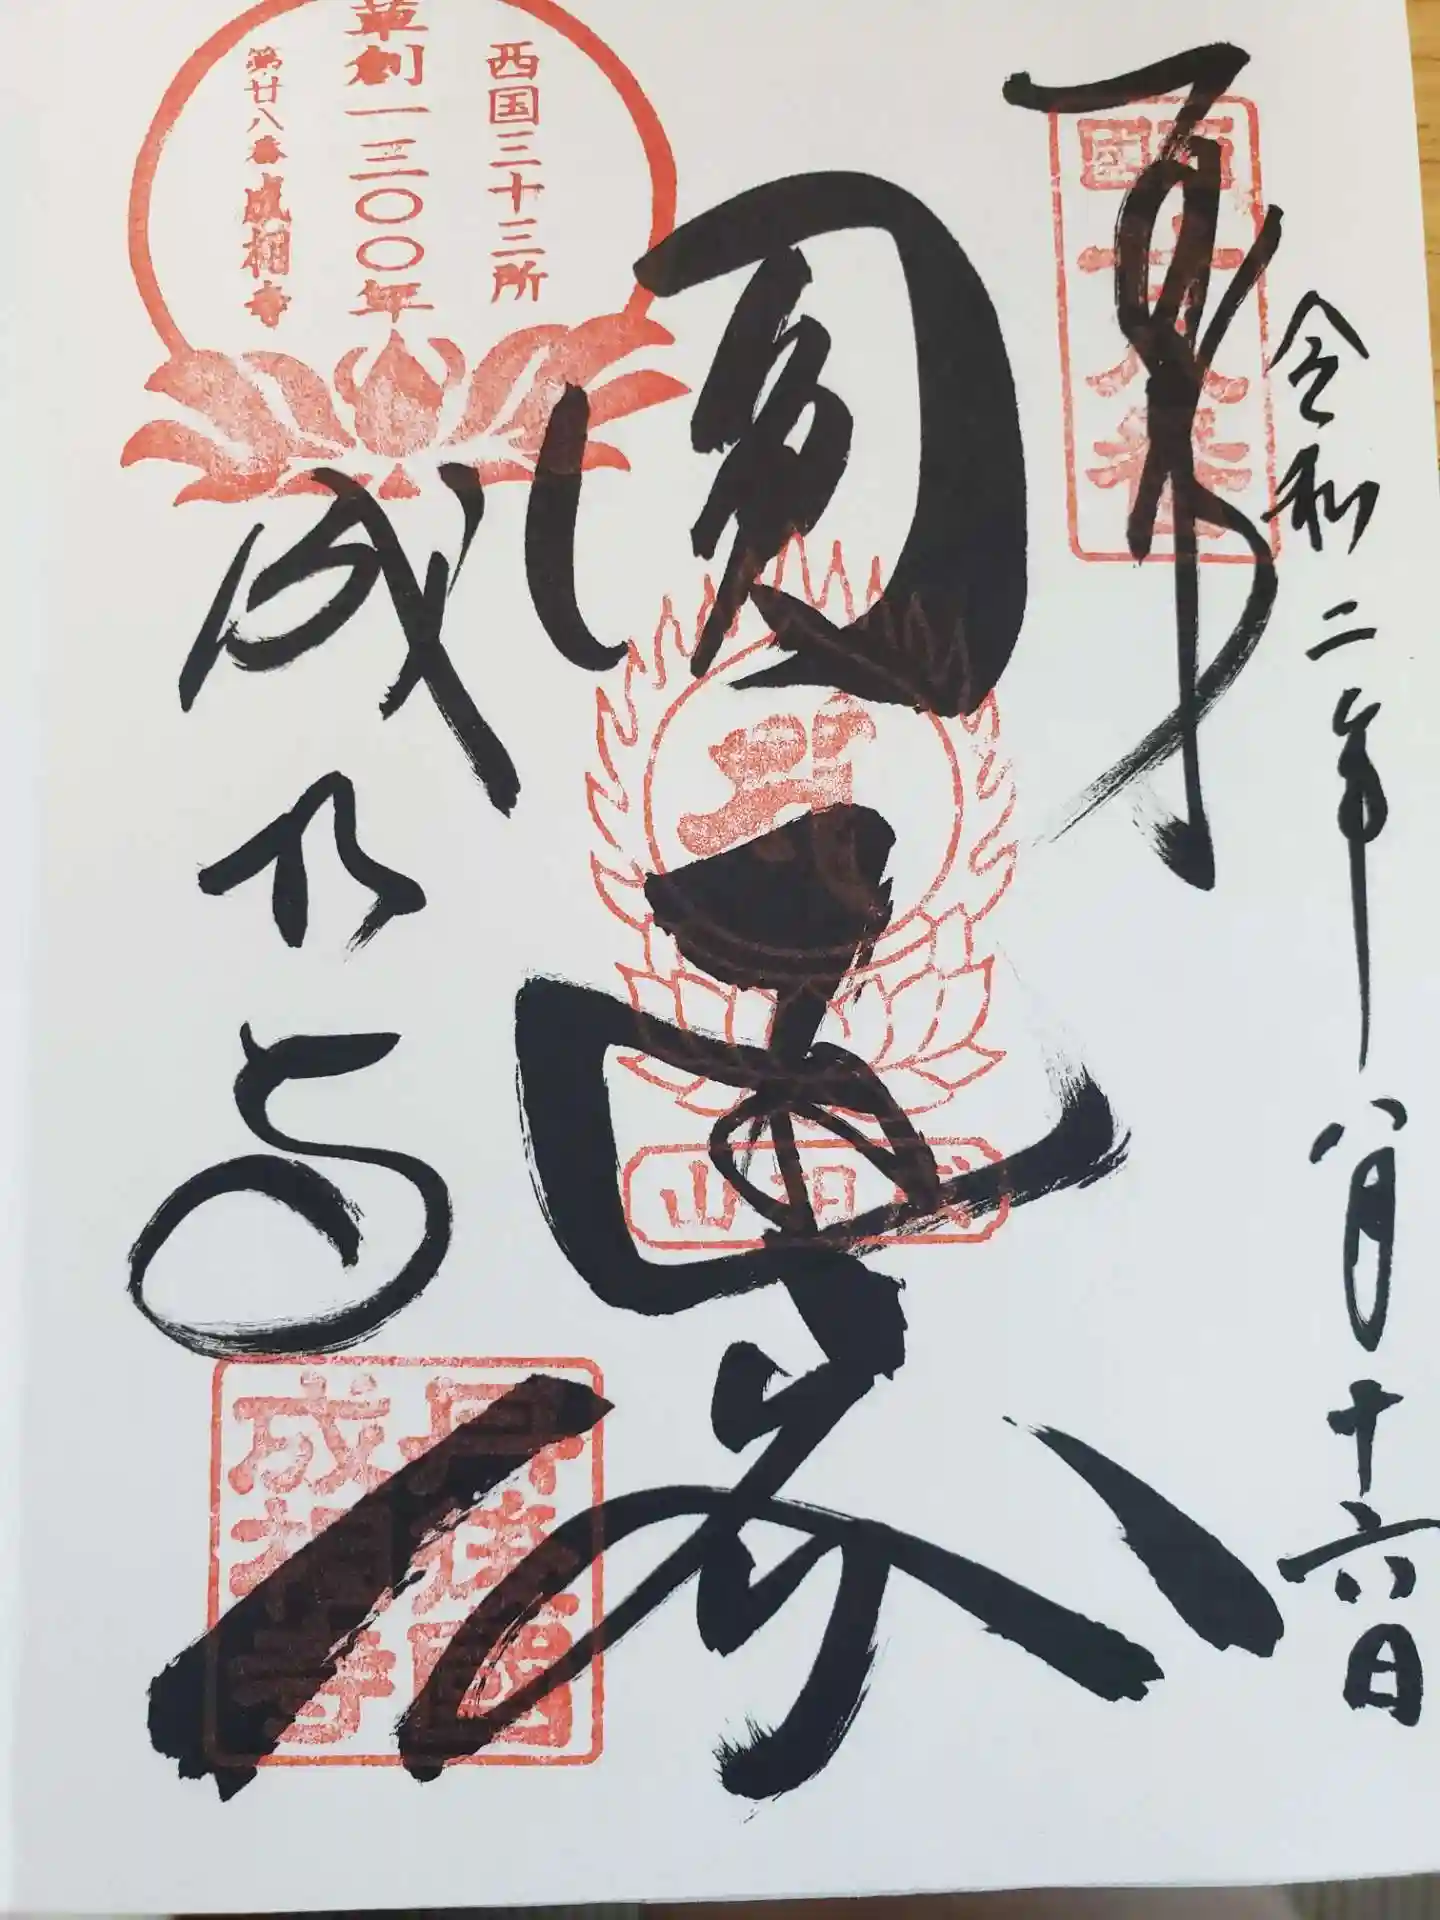 令和二年八月十六日
奉拝
西國
二十八番
圓通殿
成相山
成相寺
西国三十三所
草創一三〇〇年
第廿八番成相寺
丹後國
成相寺